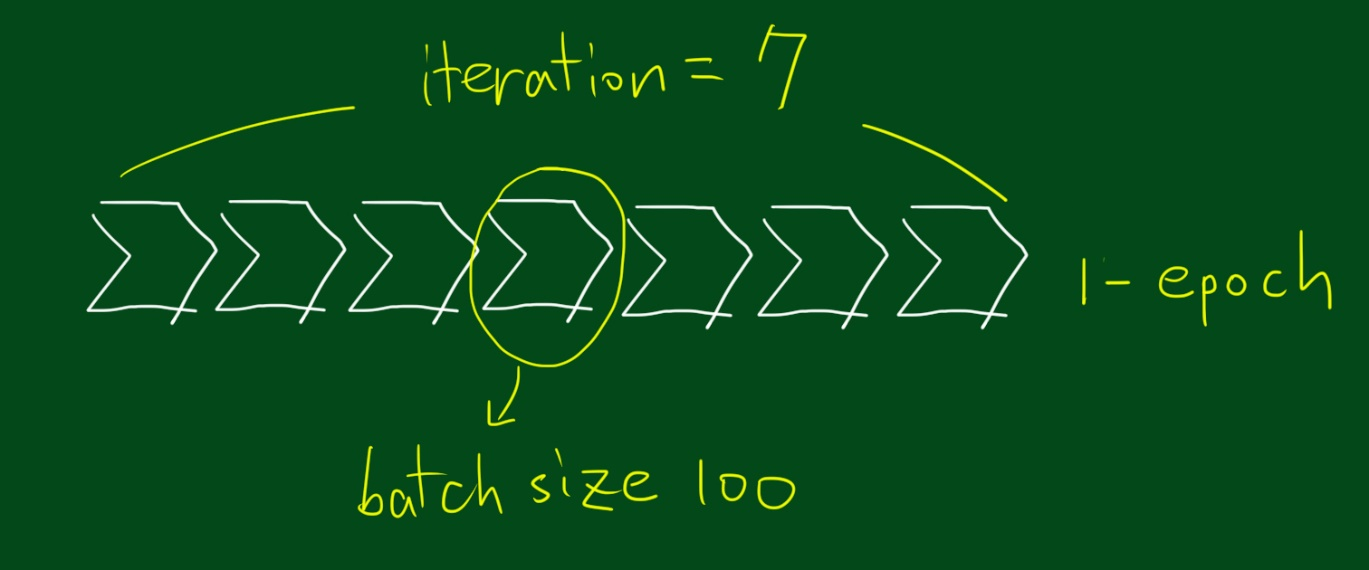 iteration = 7
1- epoch
batch size 100